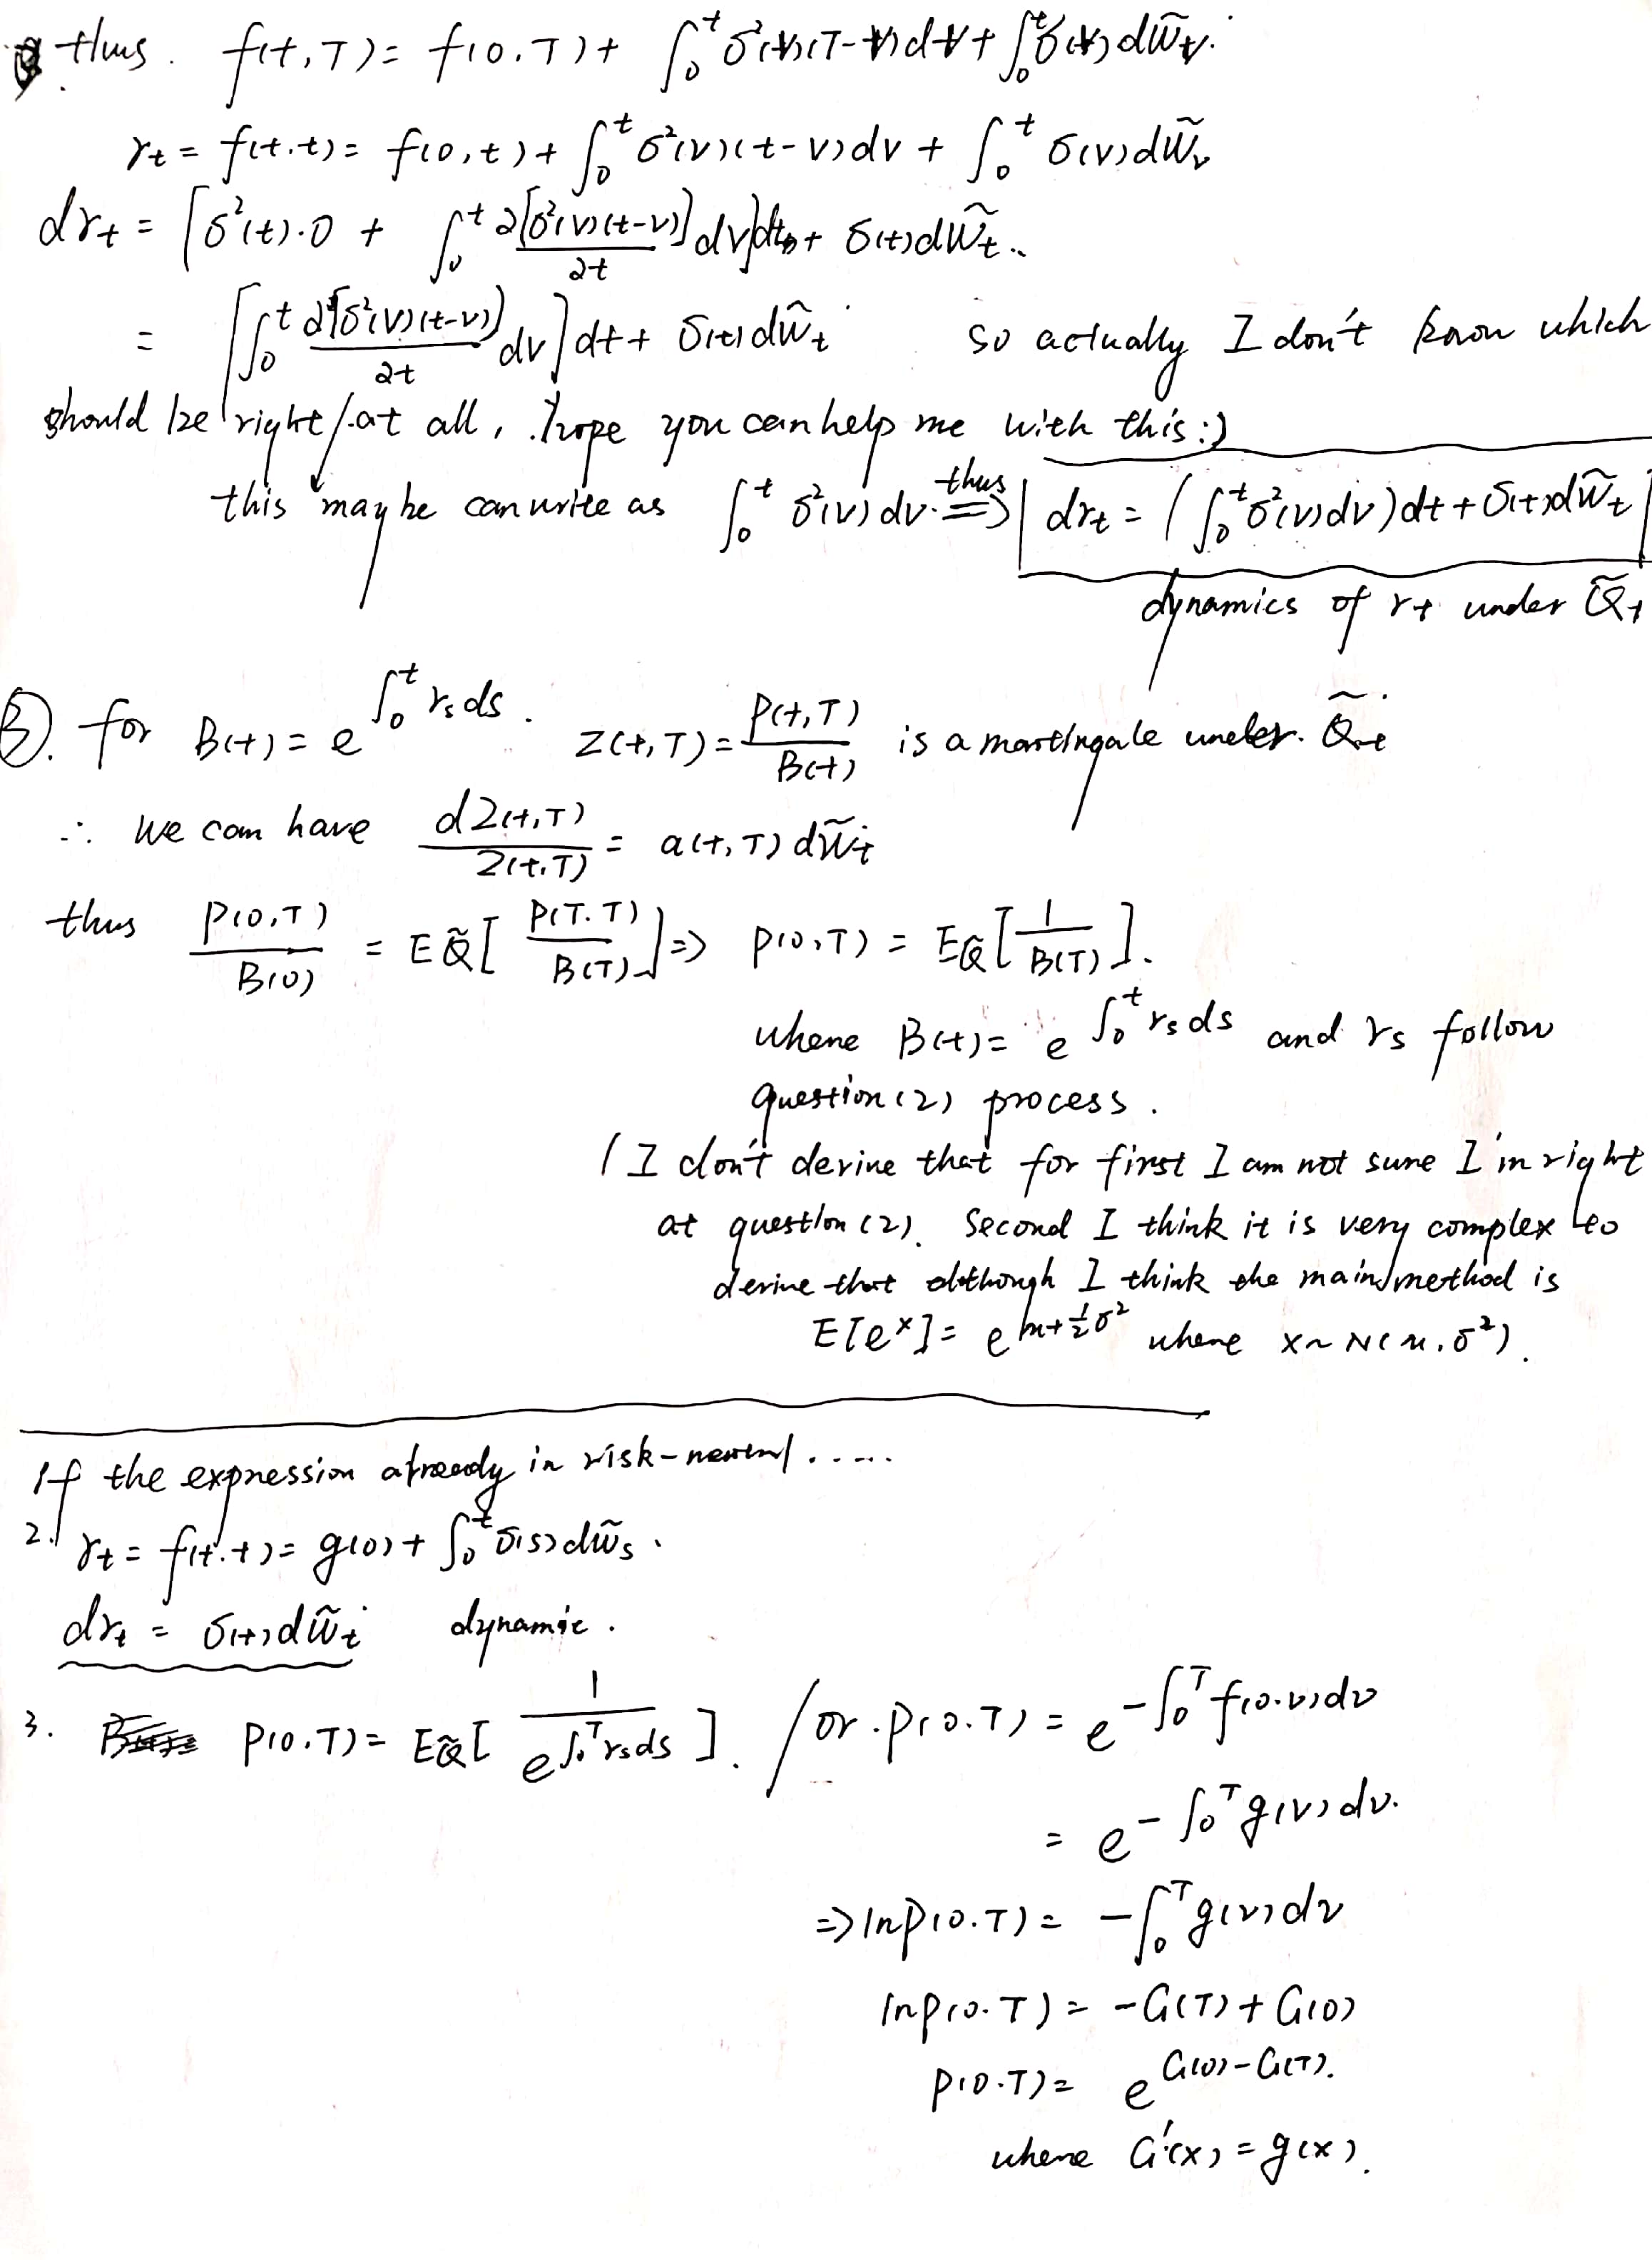 thus. f(t,T)= f(0.T)+ ∫₀ᵗ σ²(v)(T-v)dv+ ∫₀ᵗσ(v)dW̃v.
rt = f(t.t)= f(0,t)+ ∫₀ᵗ σ²(v)(t-v)dv + ∫₀ᵗ σ(v)dW̃v
drt = [σ²(t)·0 + ∫₀ᵗ ∂[σ²(v)(t-v)]/∂t dv]dt + σ(t)dW̃t..
= [∫₀ᵗ ∂[σ²(v)(t-v)]/∂t dv]dt+ σ(t)dŴt so actually I don't know which
should be right/.at all, .hope you can help me with this:)
this maybe can write as ∫₀ᵗ σ²(v)dv. thus ⟹ drt = (∫₀ᵗσ²(v)dv)dt+σ(t)dW̃t
dynamics of rt under Q̃t
③. for B(t)= e^{∫₀ᵗ rsds}. Z(t,T)= P(t,T)/B(t) is a martingale under. Q̃t
∴ we can have dZ(t,T)/Z(t.T) = a(t,T)dW̃t
thus P(0,T)/B(0) = EQ̃[P(T.T)/B(T)] => P(0,T) = EQ̃[1/B(T)].
where B(t)= e^{∫₀ᵗ rsds} and rs follow
question(2) process.
(I don't derive that for first I am not sure I'm right
at question(2). Second I think it is very complex to
derive that although I think the main method is
E[eˣ]= e^{m+½σ²} where x~N(m.σ²).
If the expression already in risk-neutral.....
2. rt= f(t.t)= g(0)+ ∫₀ᵗσ(s)dw̃s.
drt = σ(t)dW̃t dynamic.
3. P(0.T)= EQ̃[1/e^{∫₀ᵀrsds}]. /or.P(0.T)= e^{-∫₀ᵀf(0.v)dv}
= e^{-∫₀ᵀg(v)dv}.
=>lnp(0.T)= -∫₀ᵀg(v)dv
lnp(0.T)= -G(T)+G(0)
P(0.T)= e^{G(0)-G(T)}.
where G'(x)=g(x).